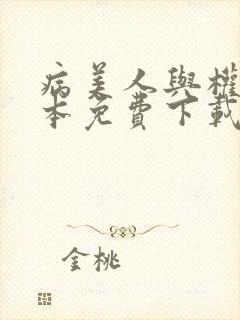 病美人與權
本免費下載
金桃